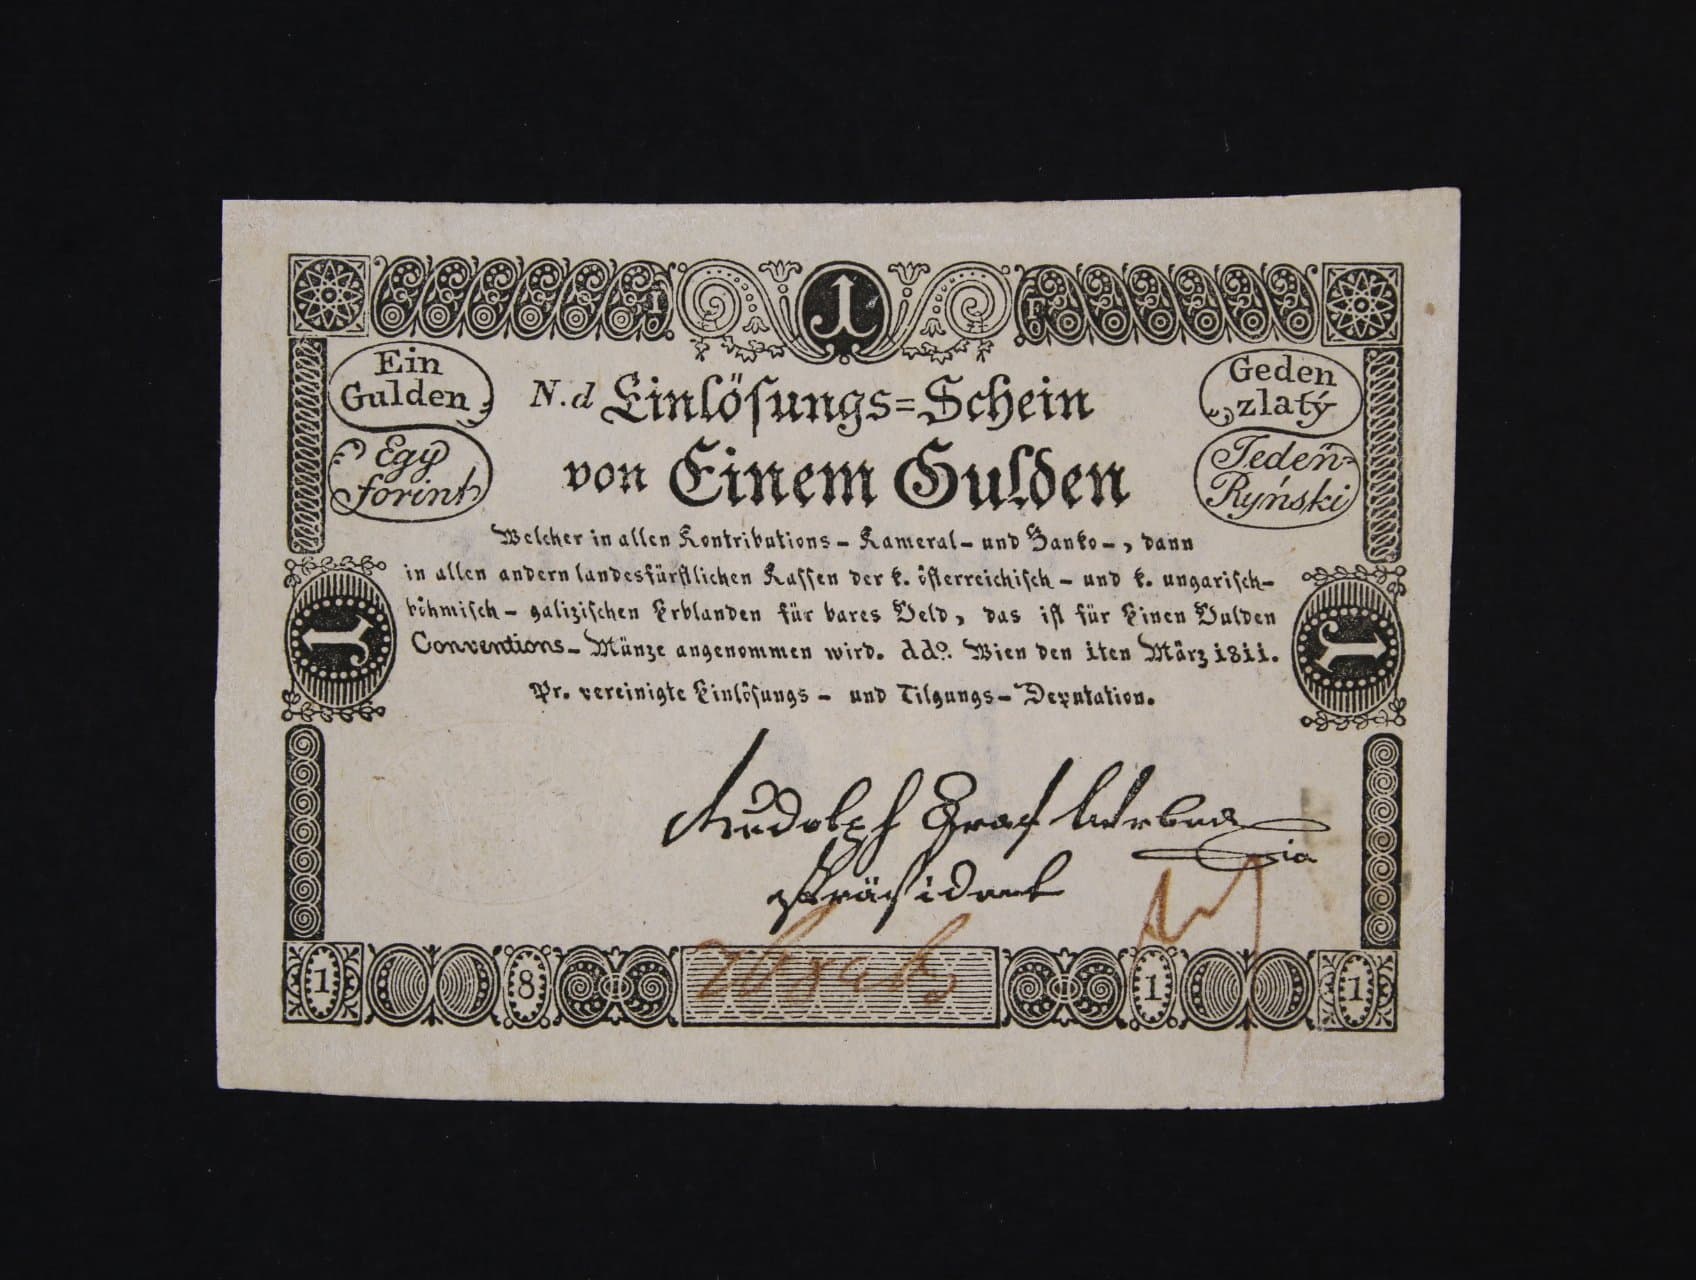 1
Ein
Gulden
Geden
zlatý
Egy
forint
Jedeń-
Ryński
N. d Einlöſungs=Schein
von Einem Gulden
Welcher in allen Kontributions - Kameral - und Banko -, dann
in allen andern landesfürſtlichen Kaſſen der k. öſterreichiſch - und k. ungariſch-
böhmiſch - galiziſchen Erblanden für bares Geld, das iſt für Einen Gulden
Conventions - Münze angenommen wird. ddo. Wien den 1ten März 1811.
1 1
Pr. vereinigte Einlöſungs - und Tilgungs - Deputation.
Rudolph Graf Wrbna
Präſident
1 8 1 1